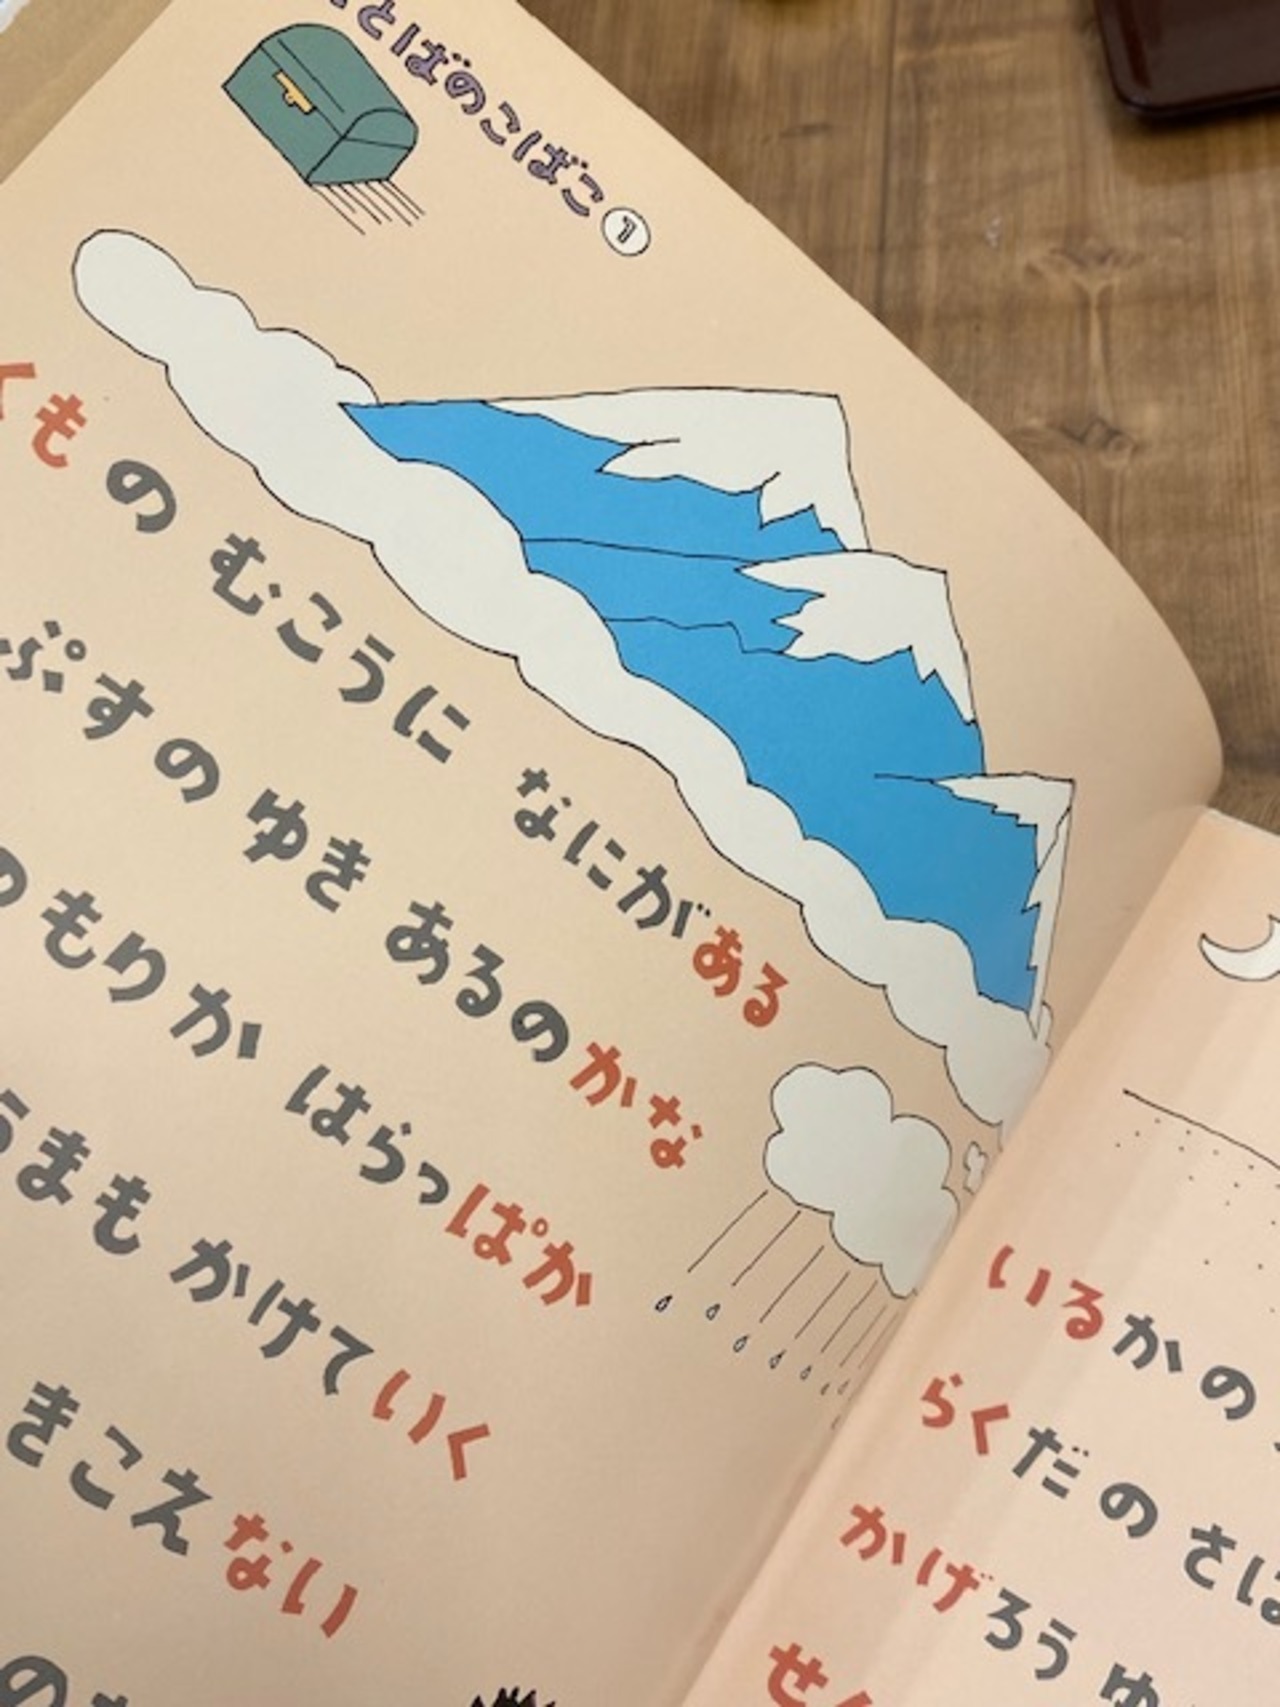 とばのこばこ①
くもの むこうに なにがある
ぷすの ゆき あるのかな
のもりか はらっぱか
うまも かけていく
きこえない
いるかの
らくだの さば
かげろう ゆ
せん